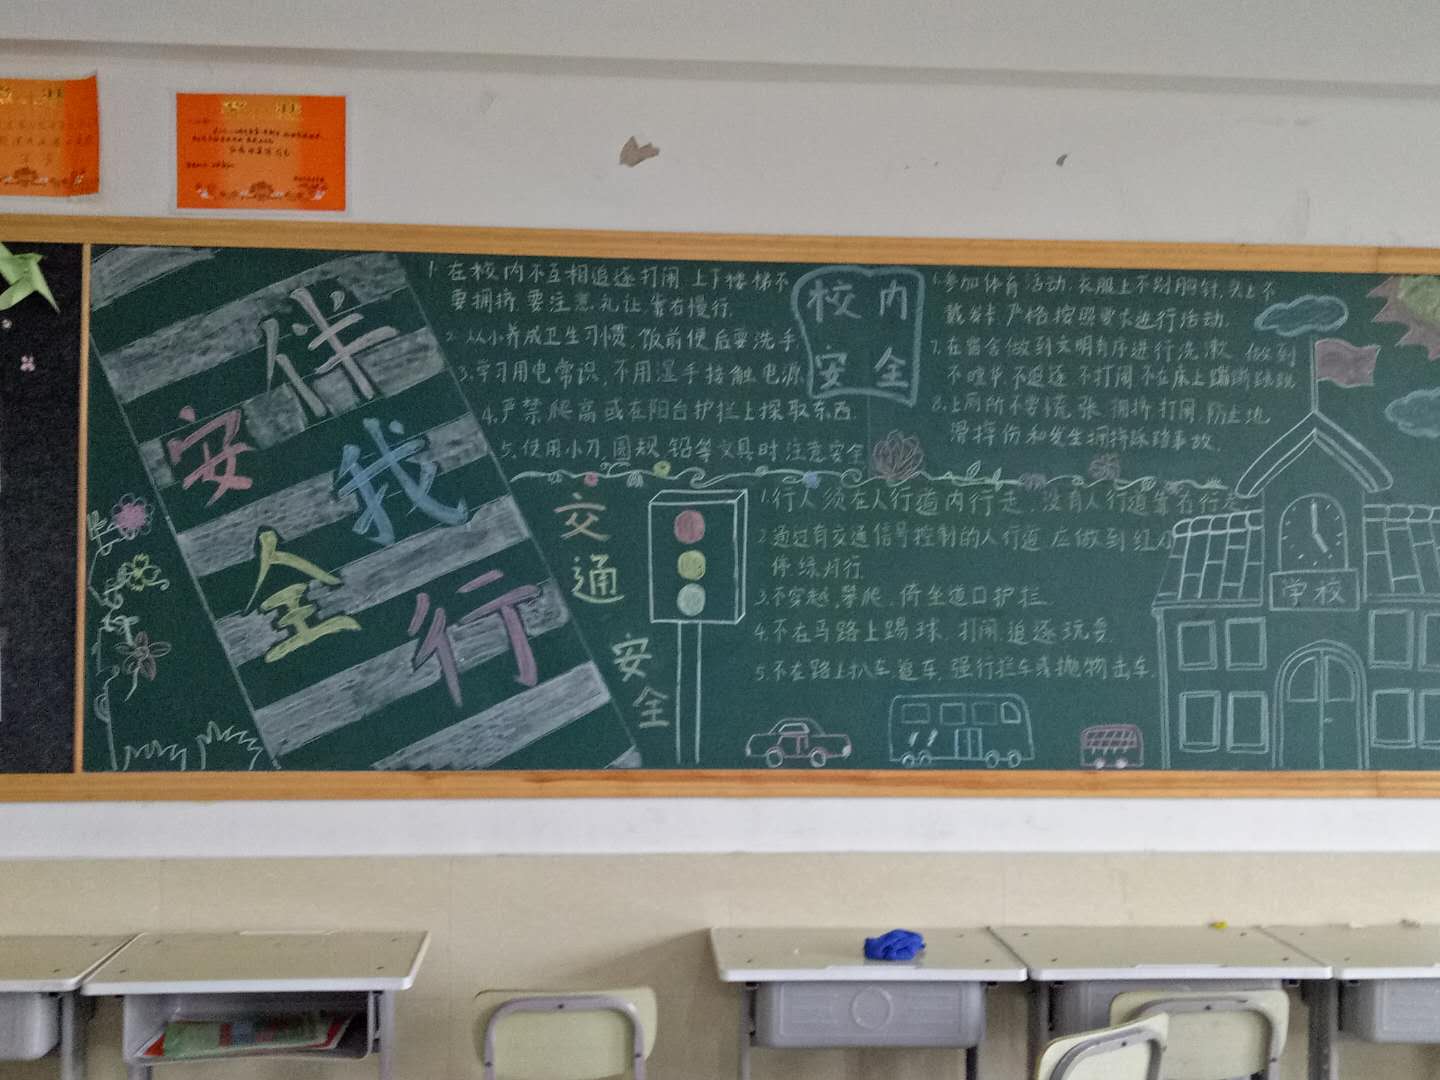 安全
伴我行
1.在校内不互相追逐打闹.上下楼梯不
要拥挤.要注意礼让.靠右慢行.
2.从小养成卫生习惯,饭前便后要洗手.
3.学习用电常识,不用湿手接触电源.
4.严禁爬高或在阳台护栏上探取东西.
5.使用小刀,圆规,铅等文具时注意安全
校内
安全
6.参加体育活动.衣服上不别胸针,头上不
戴发卡.严格按照要求进行活动.
7.在宿舍做到文明有序进行洗漱 做到
不喧华.不追逐.不打闹.不在床上蹦蹦跳跳
8.上厕所不要慌张.拥挤.打闹.防止地
滑摔伤和发生拥挤踩踏事故.
交通
安全
1.行人须在人行道内行走,没有人行道靠右行走
2.通过有交通信号控制的人行道.应做到红灯
停绿灯行.
3.不穿越,攀爬,倚坐道口护栏.
4.不在马路上踢球,打闹.追逐玩耍.
5.不在路上扒车.追车,强行拦车或抛物击车.
学校